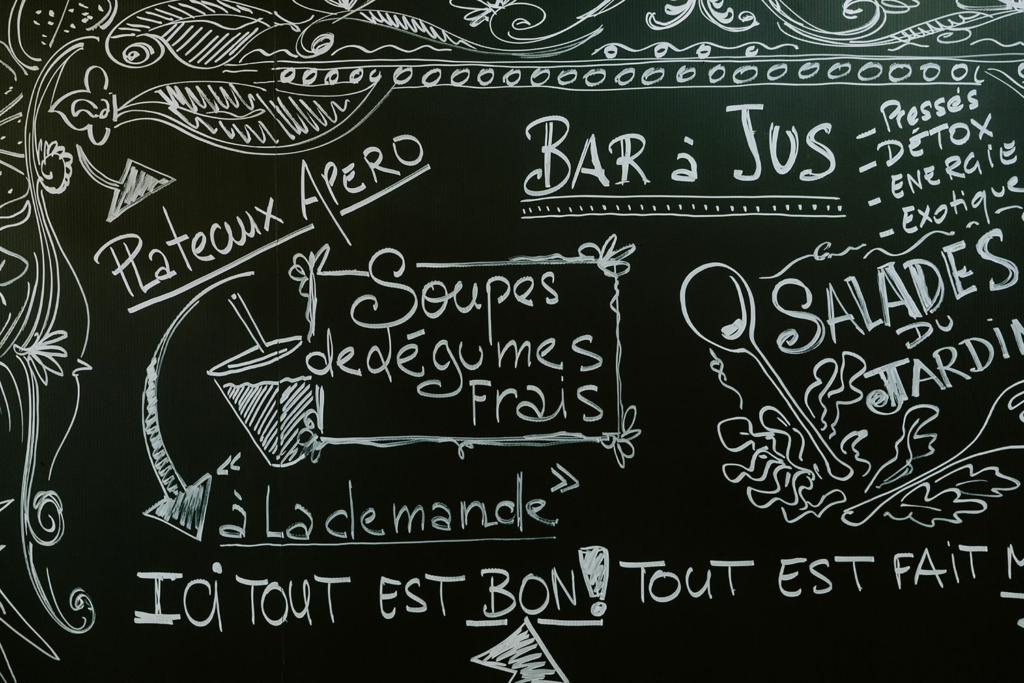 BAR à JUS
- Pressés
- DÉTOX
- ENERGIE
- Exotique
Plateaux APERO
Soupes
de légumes
Frais
SALADES
DU
JARDIN
« à La demande »
Ici TOUT EST BON! TOUT EST FAIT